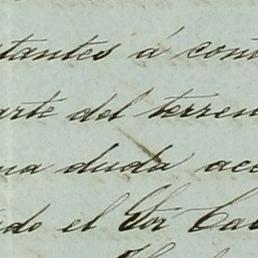 tantes á con
arte del terren
na duda ace
do el Sor Ca